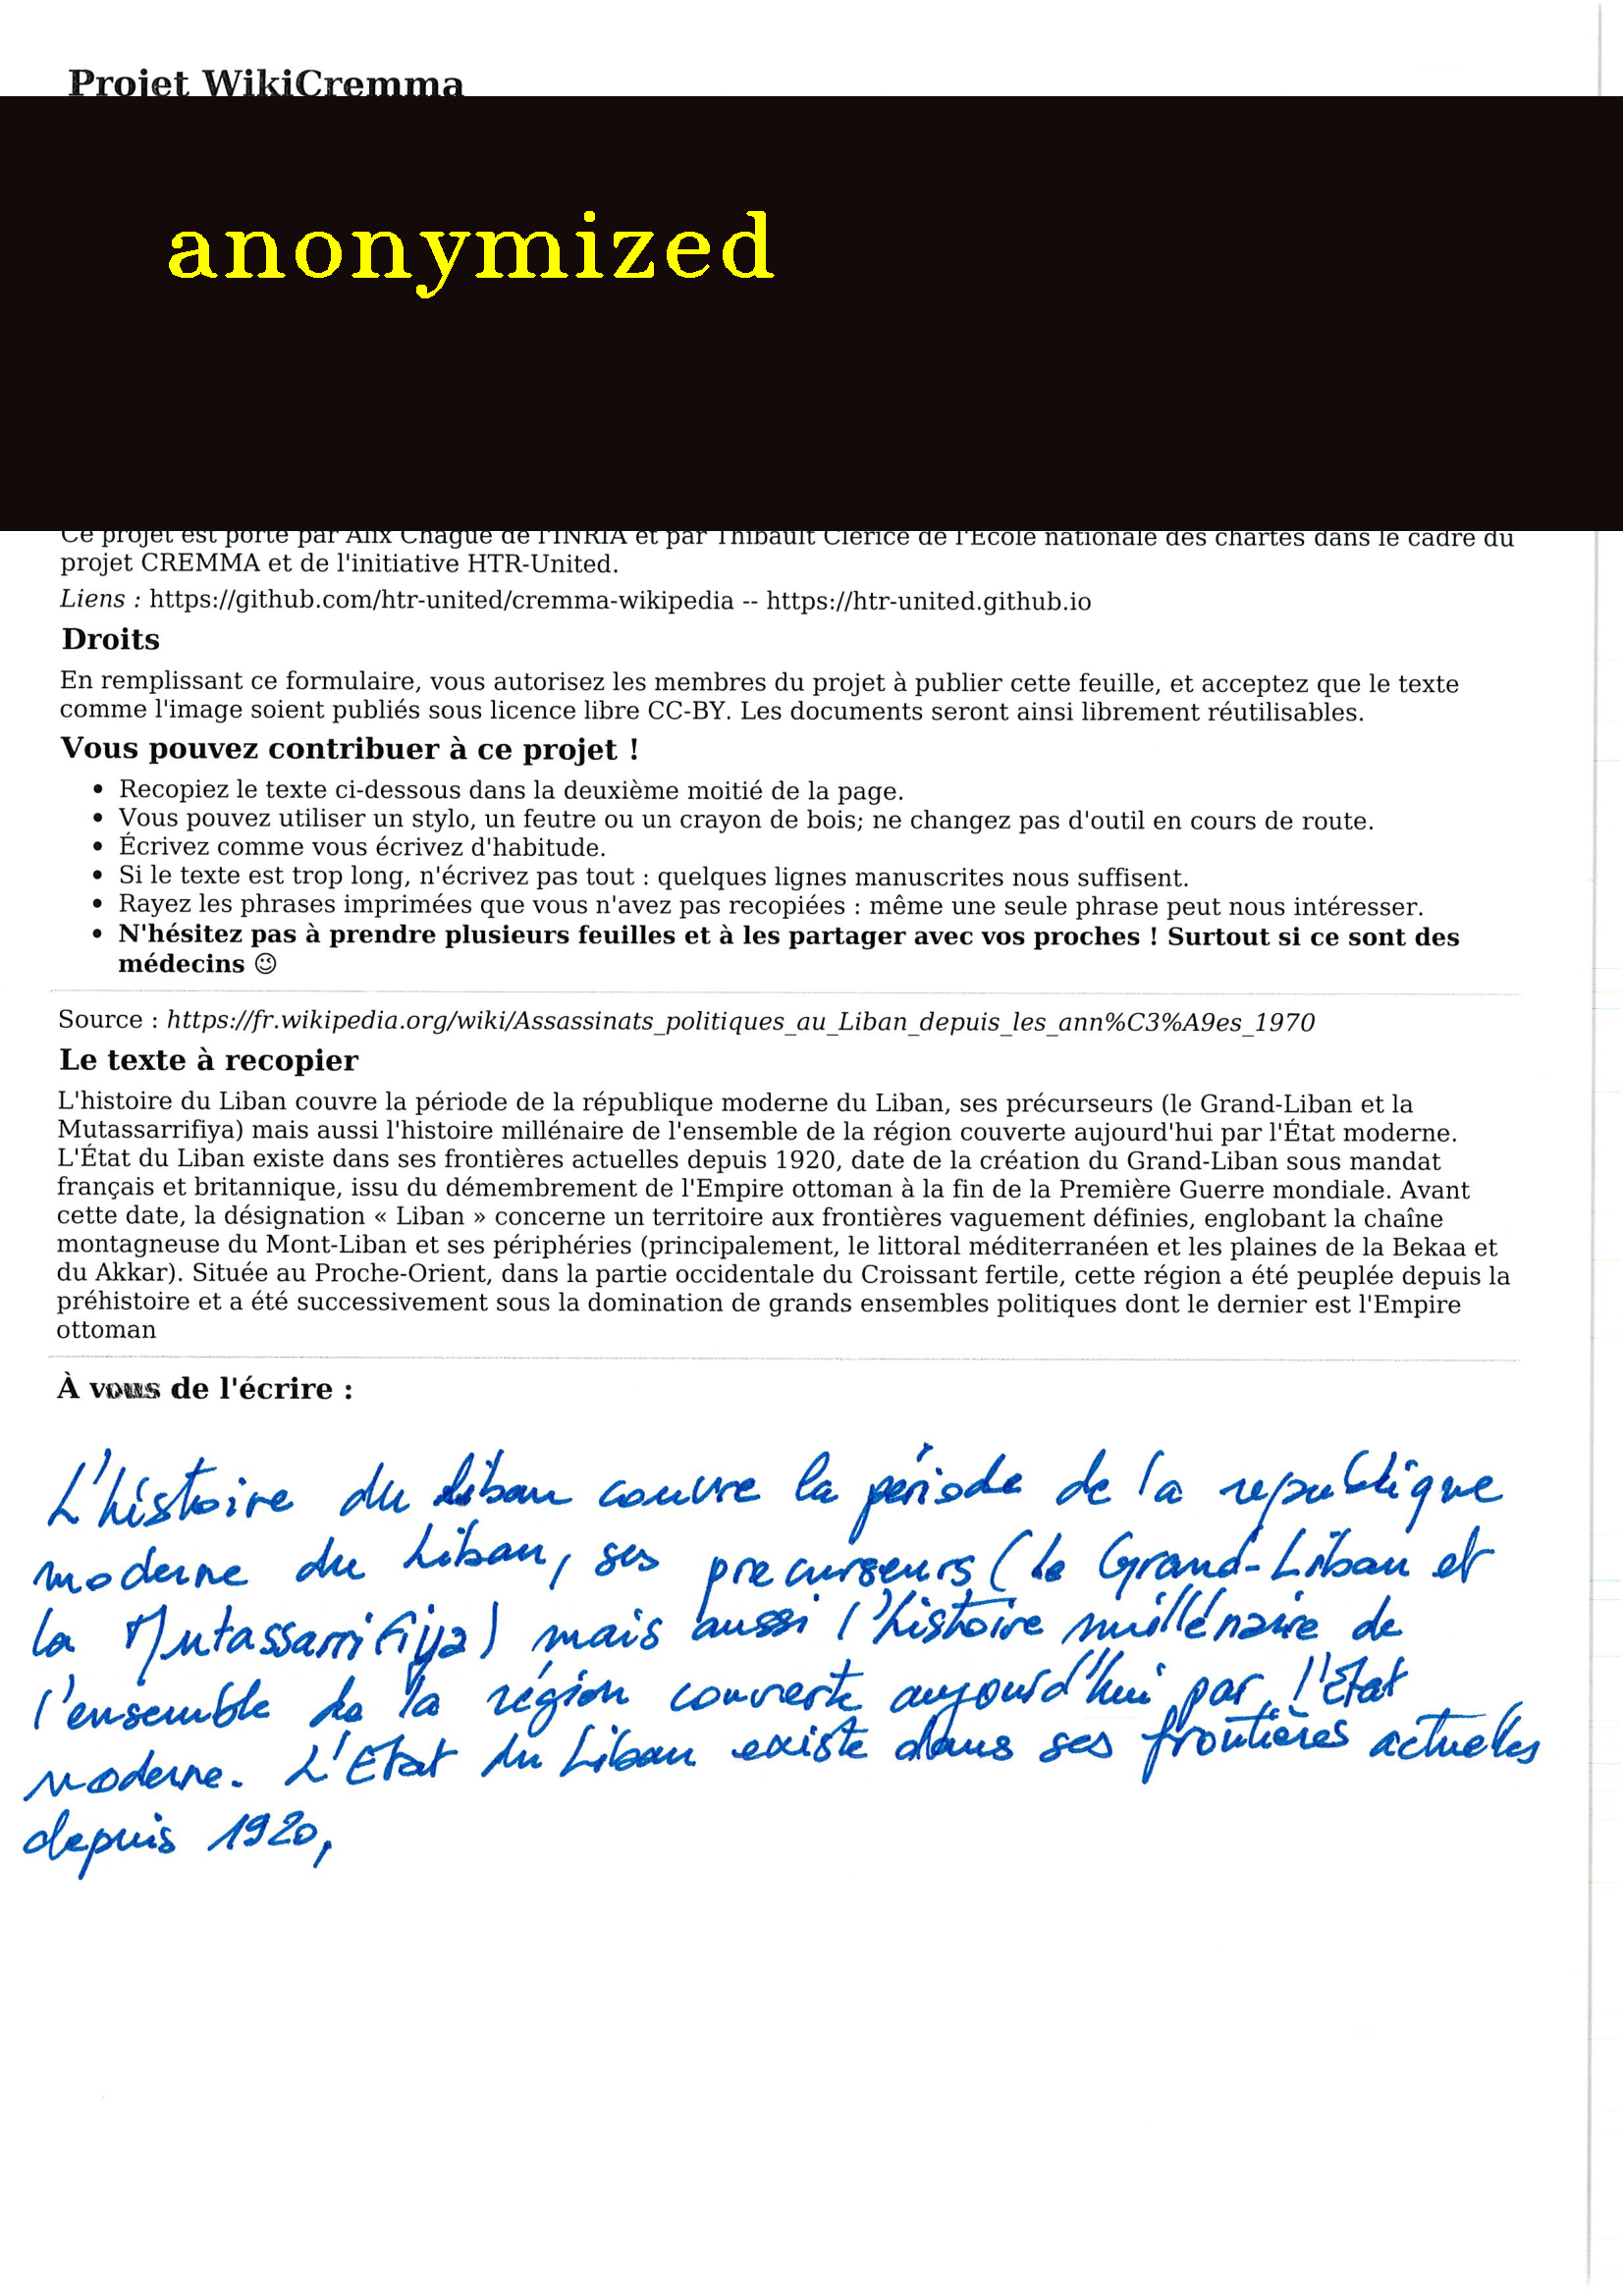 Projet WikiCremma
anonymized
Ce projet est porté par Alix Chagué de l'INRIA et par Thibault Clérice de l'École nationale des chartes dans le cadre du
projet CREMMA et de l'initiative HTR-United.
Liens : https://github.com/htr-united/cremma-wikipedia -- https://htr-united.github.io
Droits
En remplissant ce formulaire, vous autorisez les membres du projet à publier cette feuille, et acceptez que le texte
comme l'image soient publiés sous licence libre CC-BY. Les documents seront ainsi librement réutilisables.
Vous pouvez contribuer à ce projet !
• Recopiez le texte ci-dessous dans la deuxième moitié de la page.
• Vous pouvez utiliser un stylo, un feutre ou un crayon de bois; ne changez pas d'outil en cours de route.
• Écrivez comme vous écrivez d'habitude.
• Si le texte est trop long, n'écrivez pas tout : quelques lignes manuscrites nous suffisent.
• Rayez les phrases imprimées que vous n'avez pas recopiées : même une seule phrase peut nous intéresser.
• N'hésitez pas à prendre plusieurs feuilles et à les partager avec vos proches ! Surtout si ce sont des
médecins 😉
Source : https://fr.wikipedia.org/wiki/Assassinats_politiques_au_Liban_depuis_les_ann%C3%A9es_1970
Le texte à recopier
L'histoire du Liban couvre la période de la république moderne du Liban, ses précurseurs (le Grand-Liban et la
Mutassarrifiya) mais aussi l'histoire millénaire de l'ensemble de la région couverte aujourd'hui par l'État moderne.
L'État du Liban existe dans ses frontières actuelles depuis 1920, date de la création du Grand-Liban sous mandat
français et britannique, issu du démembrement de l'Empire ottoman à la fin de la Première Guerre mondiale. Avant
cette date, la désignation « Liban » concerne un territoire aux frontières vaguement définies, englobant la chaîne
montagneuse du Mont-Liban et ses périphéries (principalement, le littoral méditerranéen et les plaines de la Bekaa et
du Akkar). Située au Proche-Orient, dans la partie occidentale du Croissant fertile, cette région a été peuplée depuis la
préhistoire et a été successivement sous la domination de grands ensembles politiques dont le dernier est l'Empire
ottoman
À vous de l'écrire :
L'histoire du Liban couvre la période de la republique
moderne du Liban, ses precurseurs (le Grand-Liban et
la Mutassarrifiya) mais aussi l'histoire millénaire de
l'ensemble de la région couverte aujourd'hui par l'Etat
moderne. L'Etat du Liban existe dans ses frontières actuelles
depuis 1920,